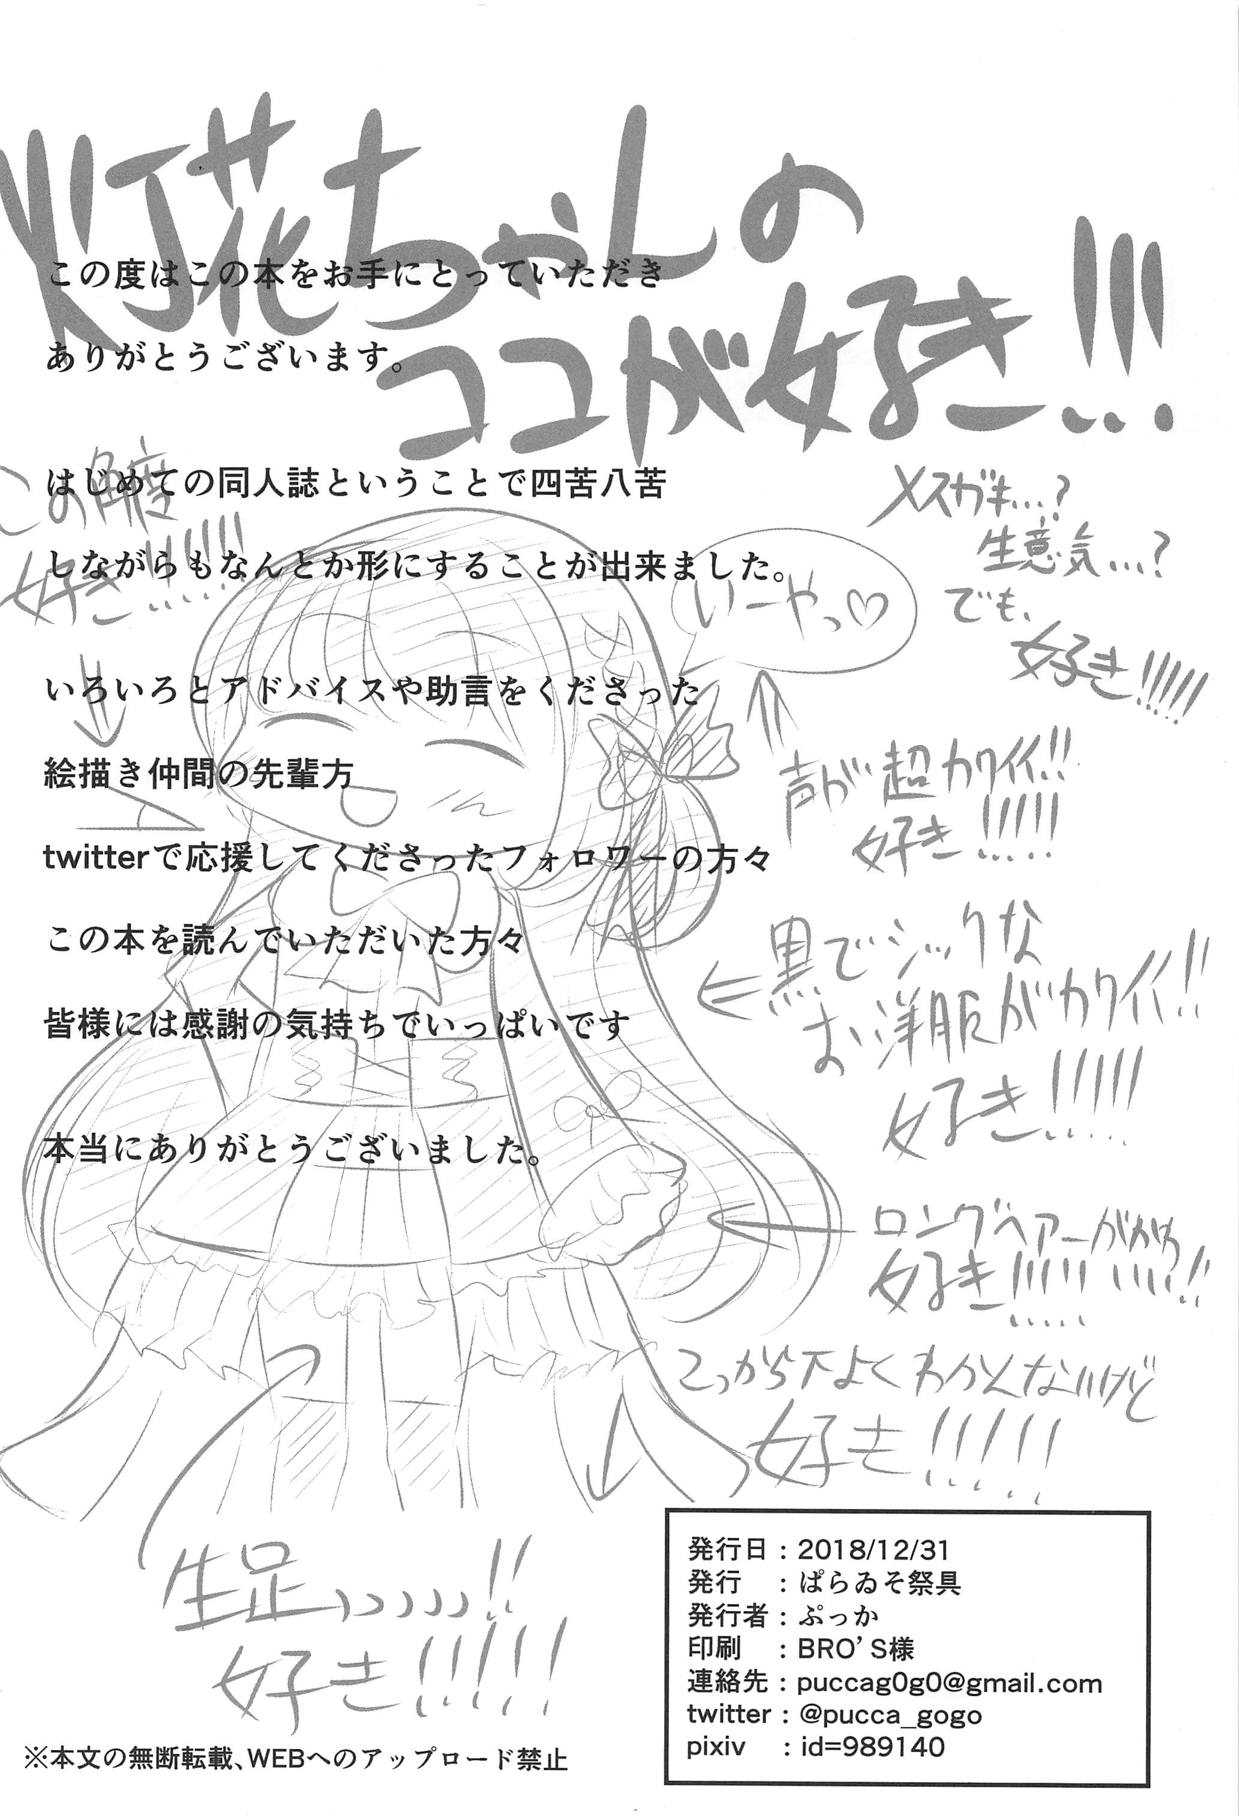 灯花ちゃんの
ココが好き!!!
この度はこの本をお手にとっていただき
ありがとうございます。
はじめての同人誌ということで四苦八苦
しながらもなんとか形にすることが出来ました。
いろいろとアドバイスや助言をくださった
絵描き仲間の先輩方
twitterで応援してくださったフォロワーの方々
この本を読んでいただいた方々
皆様には感謝の気持ちでいっぱいです
本当にありがとうございました。
この角度
好き!!!!!
いーやっ♡
メスガキ…?
生意気…?
でも、
好き!!!!!
声が超カワイイ!!
好き!!!!!
黒でシックな
お洋服がカワイイ!!
好き!!!!!
ロングヘアーが
好き!!!!!
こっから下よくわかんないけど
好き!!!!!
生足,,,,,!!
好き!!!!!
発行日：2018/12/31
発行　：ぱらゐそ祭具
発行者：ぷっか
印刷　：BRO'S様
連絡先：puccag0g0@gmail.com
twitter：@pucca_gogo
pixiv　：id=989140
※本文の無断転載、WEBへのアップロード禁止